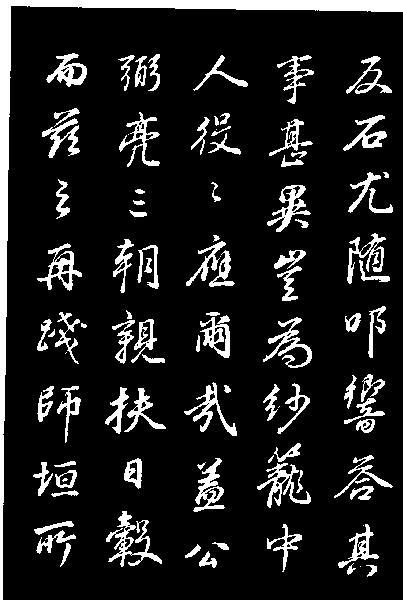 反石尤随叩響答其
事甚異豈為紗籠中
人役〻應爾哉盖公
弼亮三朝親扶日轂
而茲之再踐師垣所